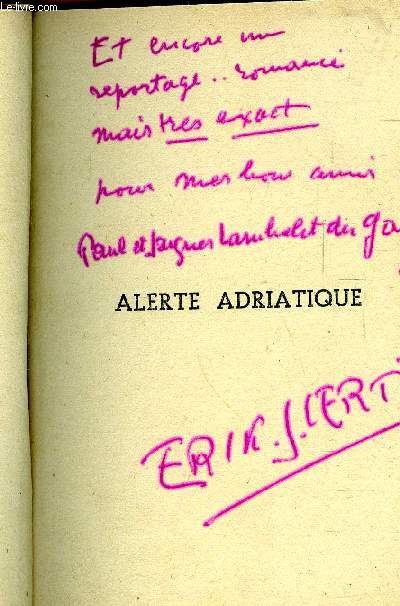 Le-livre.com
Et encore un
reportage.. romancé
mais très exact
pour mes bons amis
Paul et Jacques du
ALERTE ADRIATIQUE
ERIK. J.